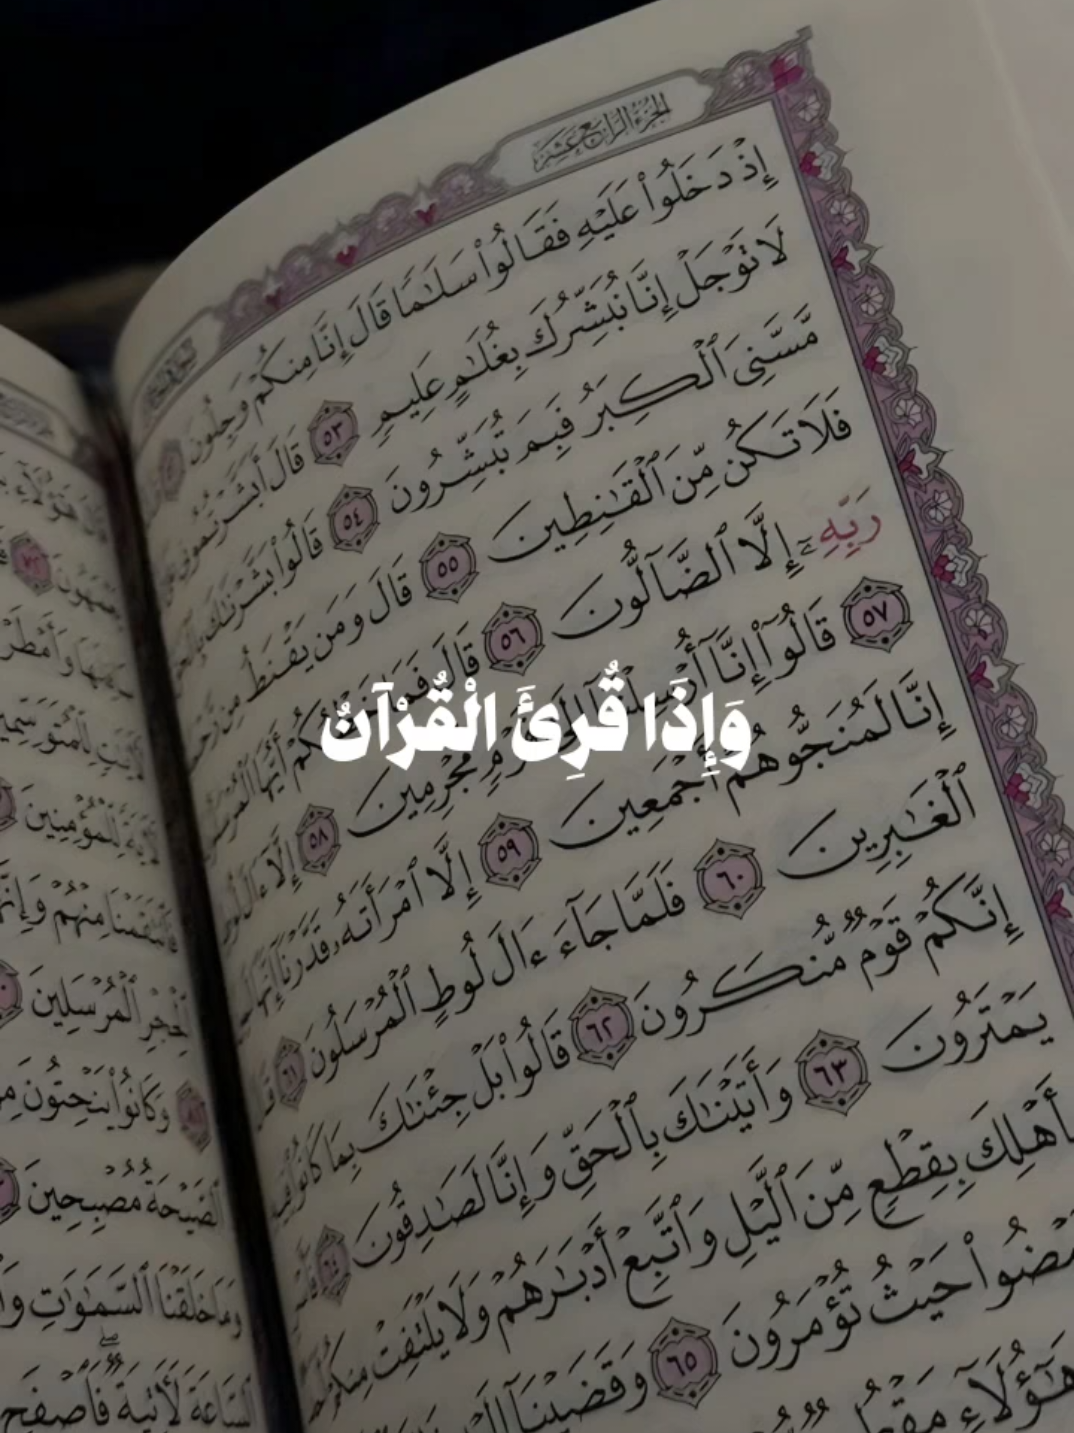 الجزء الرابع عشر
إِذْ دَخَلُوا۟ عَلَيْهِ فَقَالُوا۟ سَلَٰمًا قَالَ إِنَّا مِنكُمْ وَجِلُونَ
لَا تَوْجَلْ إِنَّا نُبَشِّرُكَ بِغُلَٰمٍ عَلِيمٍ ٥٣ قَالَ أَبَشَّرْتُمُونِى
مَّسَّنِىَ ٱلْكِبَرُ فَبِمَ تُبَشِّرُونَ ٥٤ قَالُوا۟ بَشَّرْنَٰكَ
فَلَا تَكُن مِّنَ ٱلْقَٰنِطِينَ ٥٥ قَالَ وَمَن يَقْنَطُ مِن
رَبِّهِۦٓ إِلَّا ٱلضَّآلُّونَ ٥٦ قَالَ فَمَا أَيُّهَا
٥٧ قَالُوٓا۟ إِنَّآ أُرْسِلْنَآ إِلَىٰ قَوْمٍ مُّجْرِمِينَ ٥٨ إِلَّآ ءَالَ
وَإِذَا قُرِئَ الْقُرْآنُ
إِنَّا لَمُنَجُّوهُمْ أَجْمَعِينَ ٥٩ إِلَّا ٱمْرَأَتَهُۥ قَدَّرْنَآ إِنَّهَا
ٱلْغَٰبِرِينَ ٦٠ فَلَمَّا جَآءَ ءَالَ لُوطٍ ٱلْمُرْسَلُونَ ٦١
إِنَّكُمْ قَوْمٌ مُّنكَرُونَ ٦٢ قَالُوا۟ بَلْ جِئْنَٰكَ بِمَا كَانُوا۟ فِيهِ
يَمْتَرُونَ ٦٣ وَأَتَيْنَٰكَ بِٱلْحَقِّ وَإِنَّا لَصَٰدِقُونَ ٦٤
بِأَهْلِكَ بِقِطْعٍ مِّنَ ٱلَّيْلِ وَٱتَّبِعْ أَدْبَٰرَهُمْ وَلَا يَلْتَفِتْ مِنكُمْ
حَيْثُ تُؤْمَرُونَ ٦٥ وَقَضَيْنَآ
هَٰٓؤُلَآءِ
وَأَمْطَرْنَا
لِّلْمُؤْمِنِينَ
فَٱنتَقَمْنَا مِنْهُمْ
ٱلْحِجْرِ ٱلْمُرْسَلِينَ
وَكَانُوا۟ يَنْحِتُونَ
ٱلصَّيْحَةُ مُصْبِحِينَ
وَمَا خَلَقْنَا ٱلسَّمَٰوَٰتِ
ٱلسَّاعَةَ لَءَاتِيَةٌ فَٱصْفَحِ